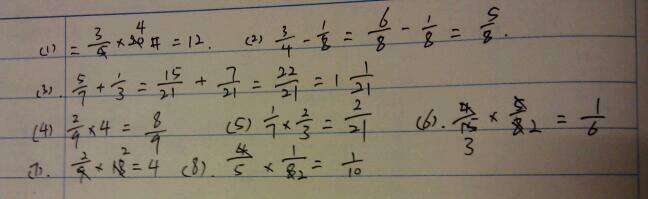 (1) = 3/5 × 20 4 = 12. (2) 3/4 - 1/8 = 6/8 - 1/8 = 5/8.
(3). 5/7 + 1/3 = 15/21 + 7/21 = 22/21 = 1 1/21
(4) 2/9 × 4 = 8/9 (5) 1/7 × 2/3 = 2/21 (6). 4/15 3 × 5/8 2 = 1/6
(7). 2/9 × 18 2 = 4 (8). 4/5 × 1/8 2 = 1/10